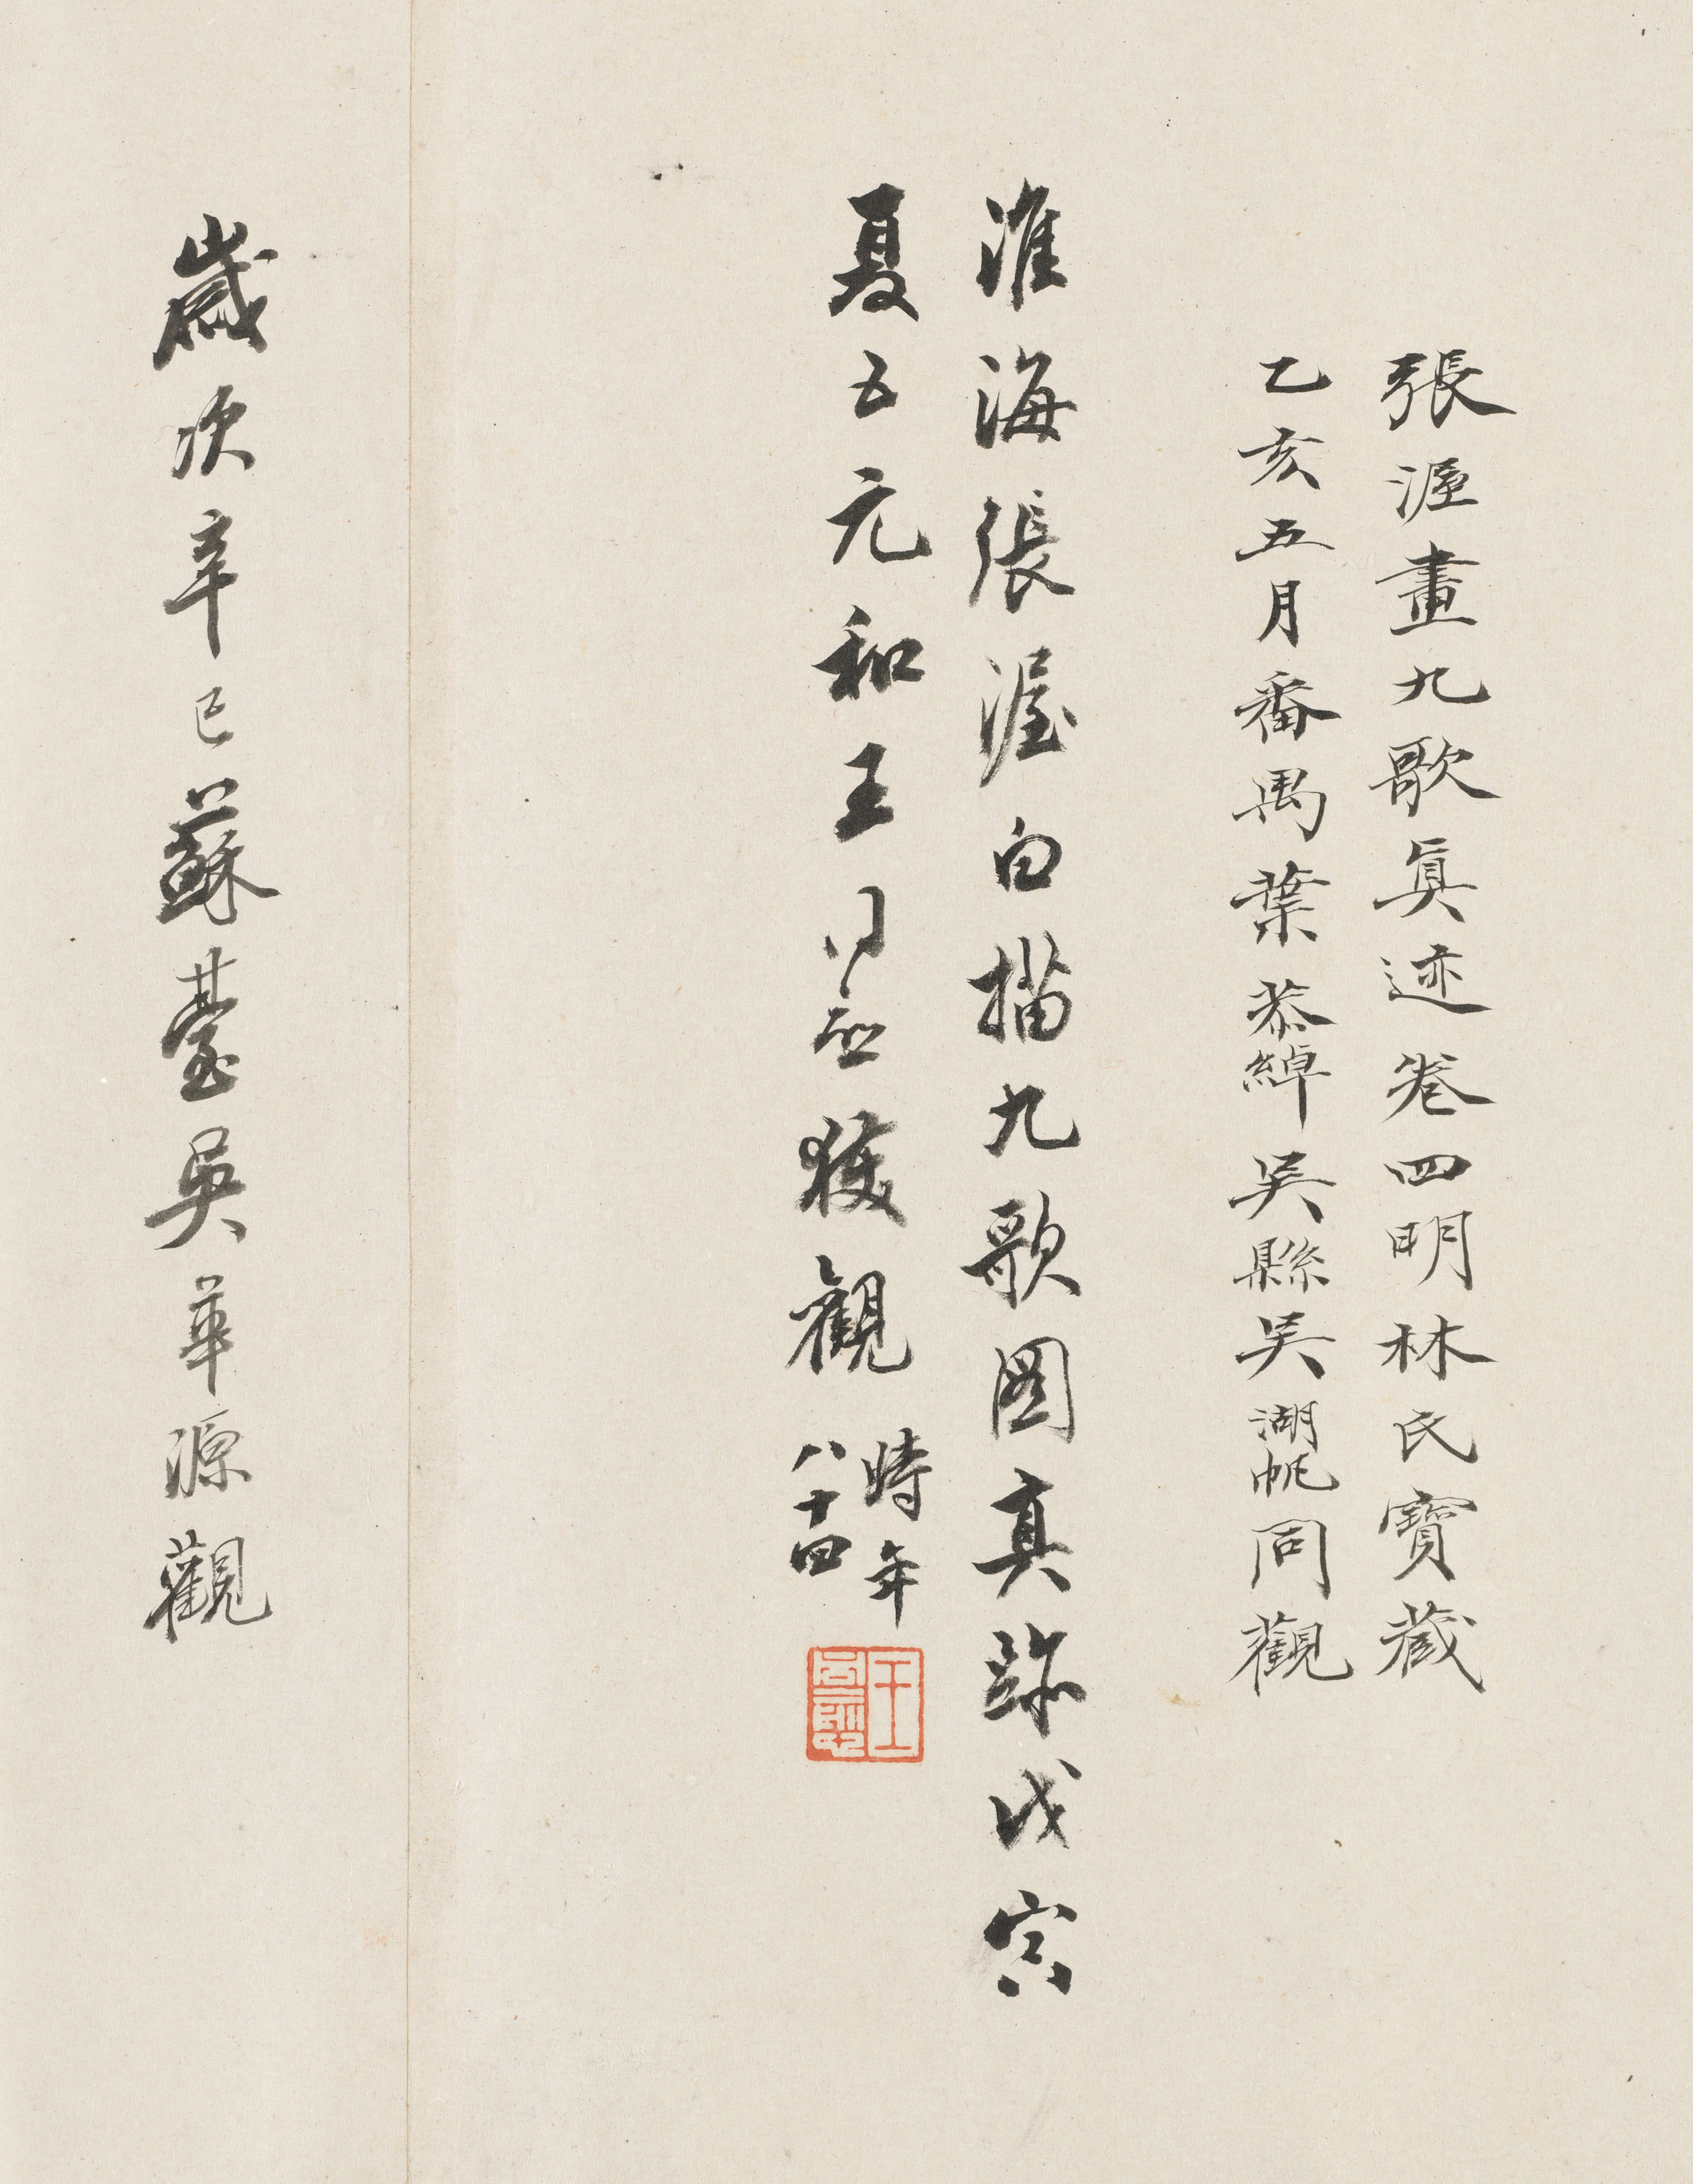 張渥畫九歌眞迹卷四明林氏寶藏
乙亥五月番禺葉恭綽吳縣吳湖帆同觀
淮海張渥白描九歌圖真跡戊寅
夏五元和王同愈獲觀
時年
八十四
王同愈
歲次辛巳蘇臺吳華源觀